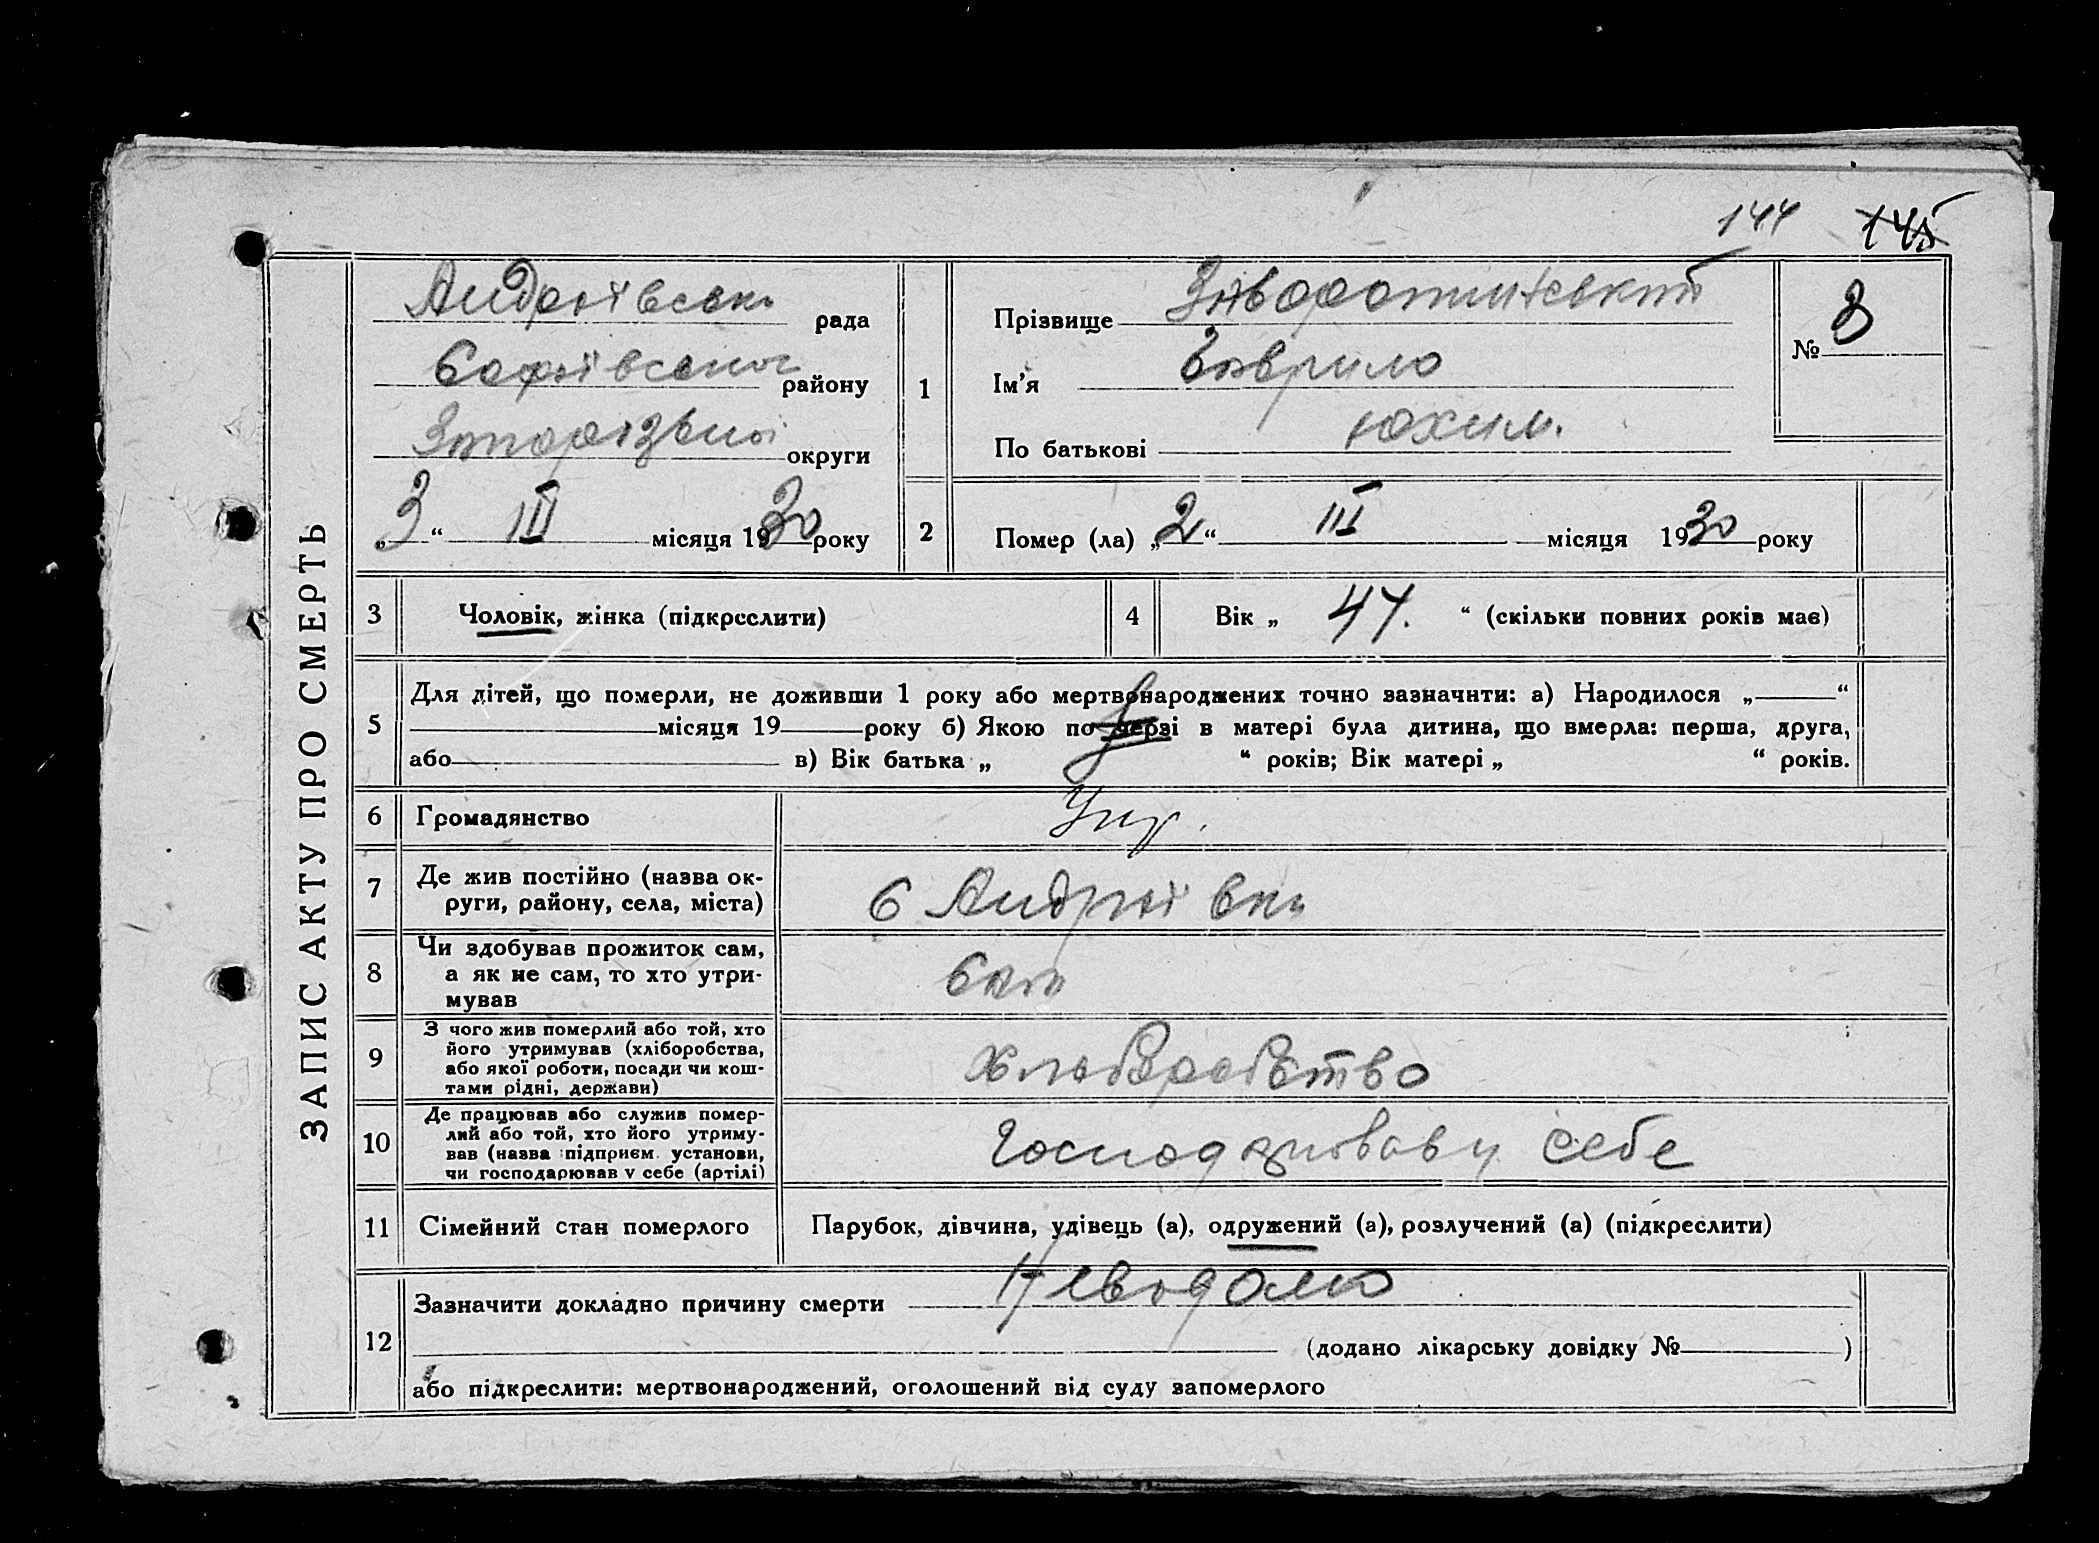 144 145
ЗАПИС АКТУ ПРО СМЕРТЬ
Андріївська рада
Софіївського району
Запорізької округи
„3“ III місяця 1930 року
1
Прізвище Заворотинський
Ім’я Гаврило
По батькові Юхим.
№ 3
2 Помер (ла) „2“ III місяця 1930 року
3 Чоловік, жінка (підкреслити)
4 Вік „ 47. “ (скільки повних років має)
5 Для дітей, що померли, не доживши 1 року або мертвонароджених точно зазначити: а) Народилося „ “
місяця 19 року б) Якою по черзі в матері була дитина, що вмерла: перша, друга,
або в) Вік батька „ “ років; Вік матері „ “ років.
6 Громадянство Укр.
7 Де жив постійно (назва ок-
руги, району, села, міста) С Андріївка
8 Чи здобував прожиток сам,
а як не сам, то хто утри-
мував Сам
9 З чого жив померлий або той, хто
його утримував (хліборобства,
або якої роботи, посади чи кош-
тами рідні, держави) Хліборобство
10 Де працював або служив помер-
лий або той, хто його утриму-
вав (назва підприєм. установи,
чи господарював у себе (артілі) Господарював у себе
11 Сімейний стан померлого Парубок, дівчина, удівець (а), одружений (а), розлучений (а) (підкреслити)
12 Зазначити докладно причину смерти
(додано лікарську довідку № )
або підкреслити: мертвонароджений, оголошений від суду запомерлого